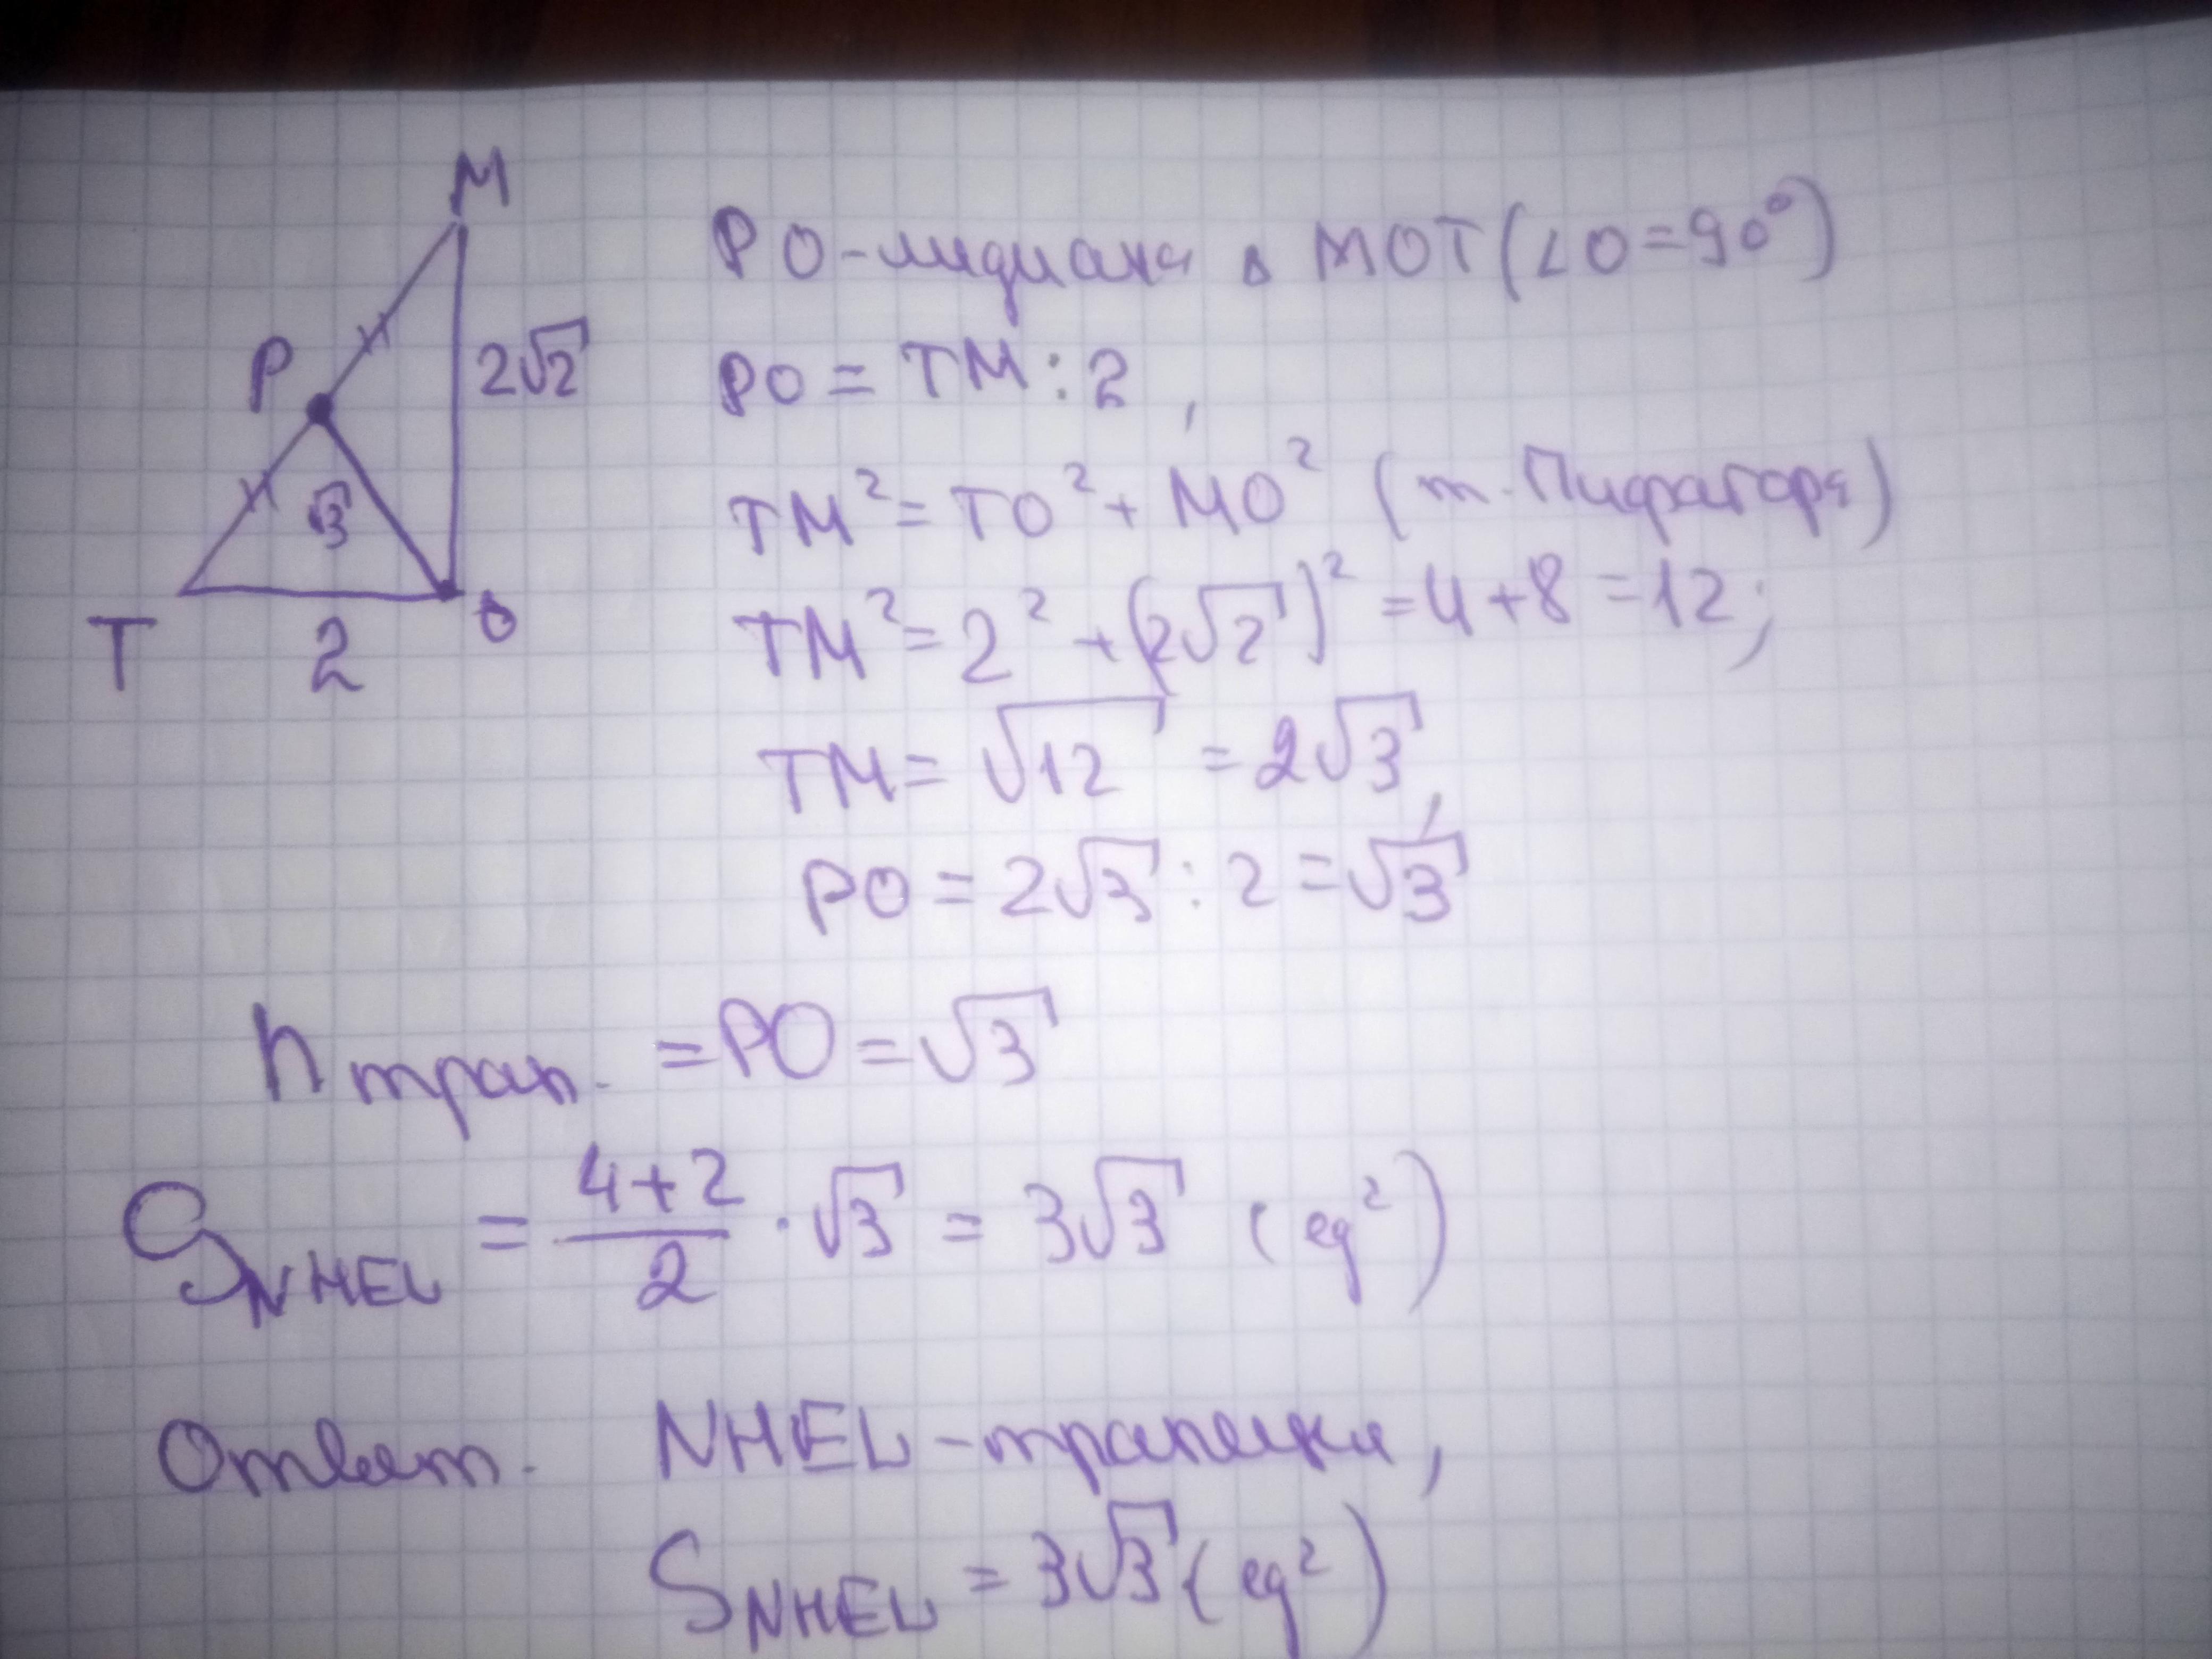 M
P
2√2
√3
T
2
O
PO-медиана в MOT (∠O=90°)
PO = TM : 2,
TM² = TO² + MO² (т. Пифагора)
TM² = 2² + (2√2)² = 4+8 = 12;
TM = √12 = 2√3,
PO = 2√3 : 2 = √3
h трап. = PO = √3
S NHEL = (4+2)/2 · √3 = 3√3 (ед²)
Ответ. NHEL - трапеция,
S NHEL = 3√3 (ед²)